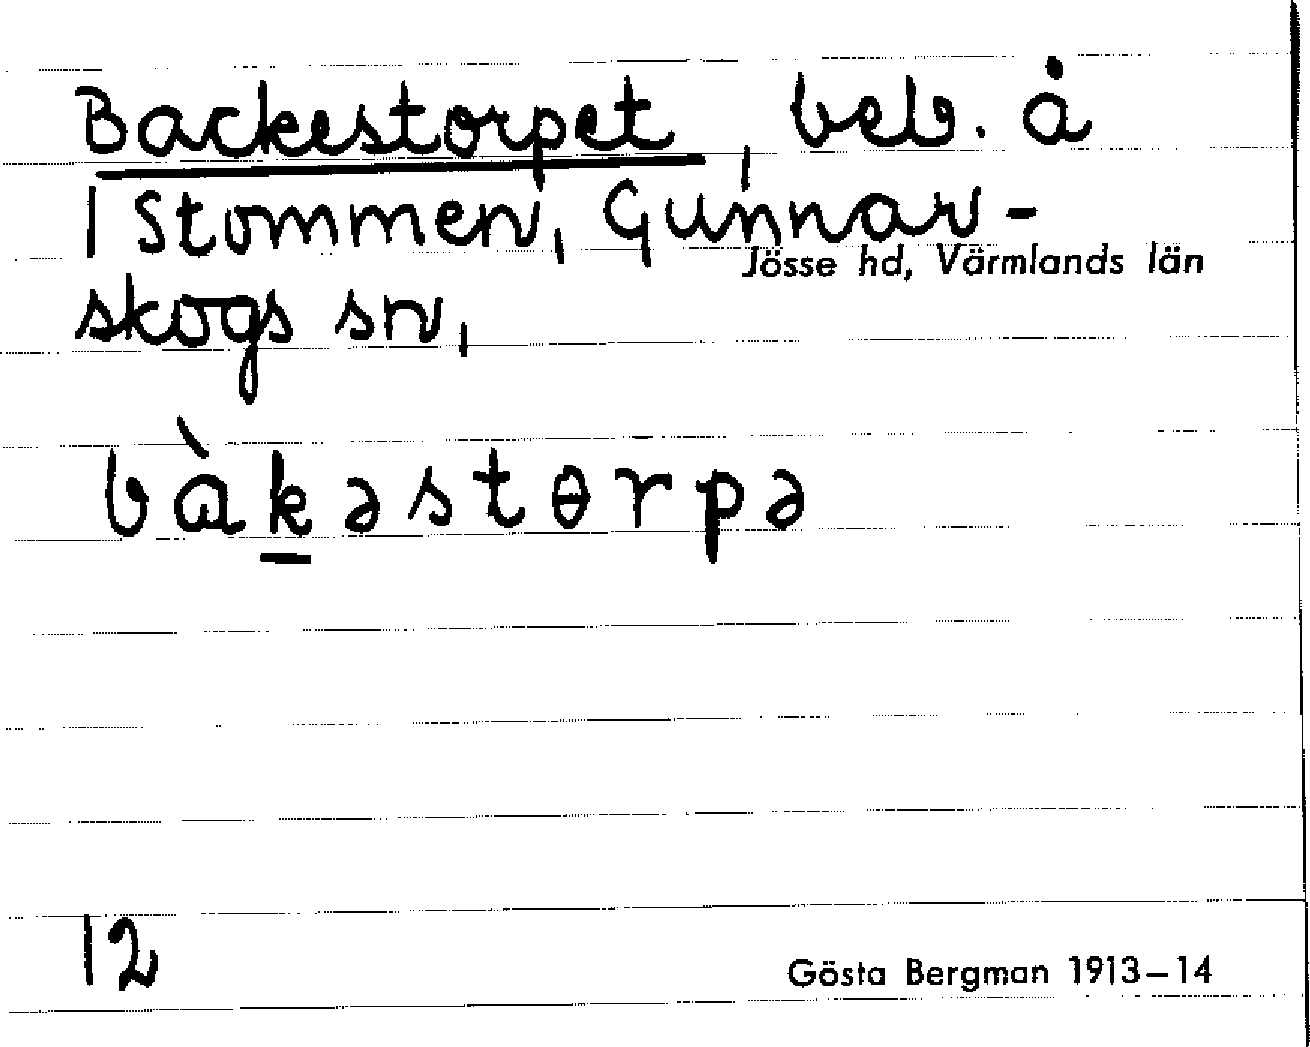 Backestorpet, beb. å
1 Stommen, Gunnar-
Jösse hd, Värmlands län
skogs sn,
bàkəstɵrpə
12
Gösta Bergman 1913–14